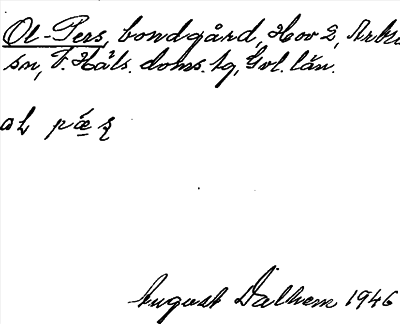 Ol-Pers, bondgård, Hov 2, Arbrå
sn, V. Häls. doms. hg, Gvl. län.
August Dalhem 1946